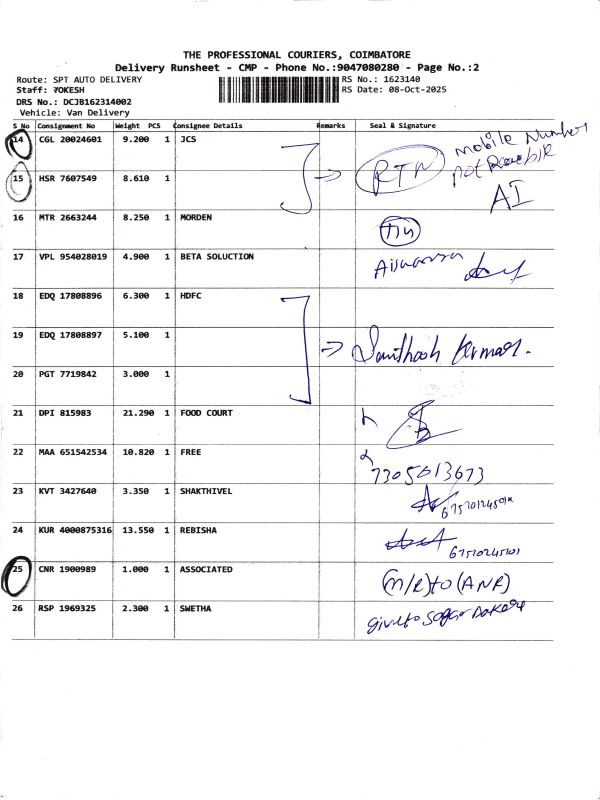 THE PROFESSIONAL COURIERS, COIMBATORE
Delivery Runsheet - CMP - Phone No.:9047080280 - Page No.:2
Route: SPT AUTO DELIVERY
RS No.: 1623140
Staff: YOKESH
RS Date: 08-Oct-2025
DRS No.: DCJB162314002
Vehicle: Van Delivery
S No Consignment No Weight PCS Consignee Details Remarks Seal & Signature
14 CGL 20024601 9.200 1 JCS
Mobile Number
not
15 HSR 7607549 8.610 1
RTN
AI
16 MTR 2663244 8.250 1 MORDEN
17 VPL 954028019 4.900 1 BETA SOLUCTION
18 EDQ 17808896 6.300 1 HDFC
19 EDQ 17808897 5.100 1
Santhosh Kumar.
20 PGT 7719842 3.000 1
21 DPI 815983 21.290 1 FOOD COURT
22 MAA 651542534 10.820 1 FREE
7305613673
23 KVT 3427640 3.350 1 SHAKTHIVEL
24 KUR 4000875316 13.550 1 REBISHA
25 CNR 1900989 1.000 1 ASSOCIATED
(M/R) to (ANR)
26 RSP 1969325 2.300 1 SWETHA
give to